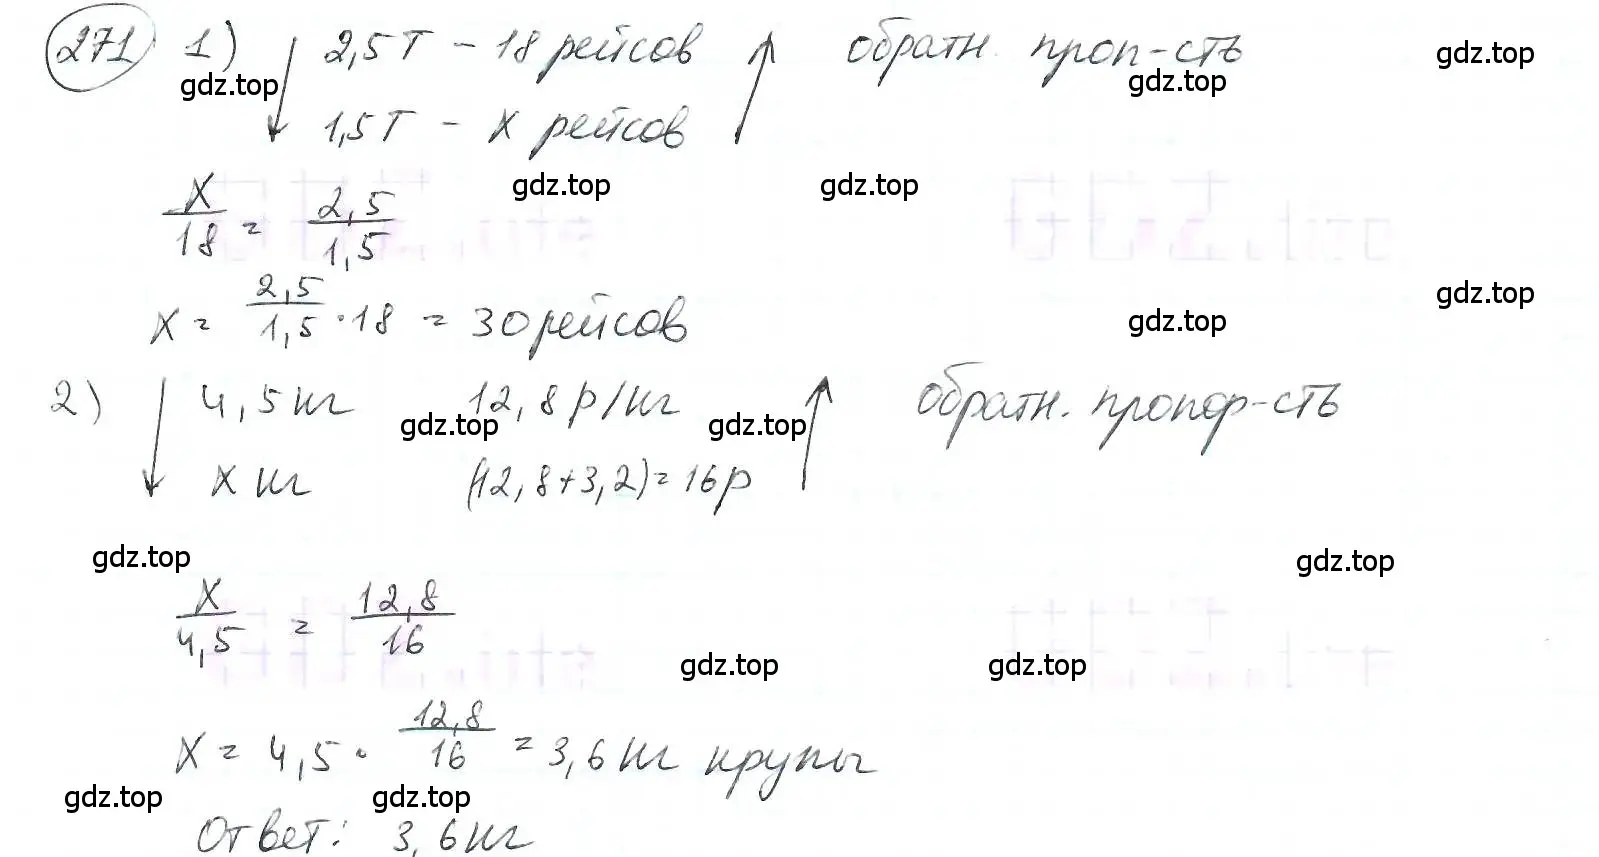 271 1) 2,5Т – 18 рейсов обратн. проп-сть
gdz.top gdz.top gdz.top
1,5Т – x рейсов
gdz.top gdz.top
x/18 = 2,5/1,5
x = 2,5/1,5 · 18 = 30 рейсов
gdz.top gdz.top
2) 4,5 кг 12,8 р/кг обратн. пропор-сть
gdz.top gdz.top
x кг (12,8+3,2) = 16р
gdz.top gdz.top
x/4,5 = 12,8/16
gdz.top gdz.top
x = 4,5 · 12,8/16 = 3,6 кг крупы
gdz.top gdz.top
Ответ: 3,6 кг